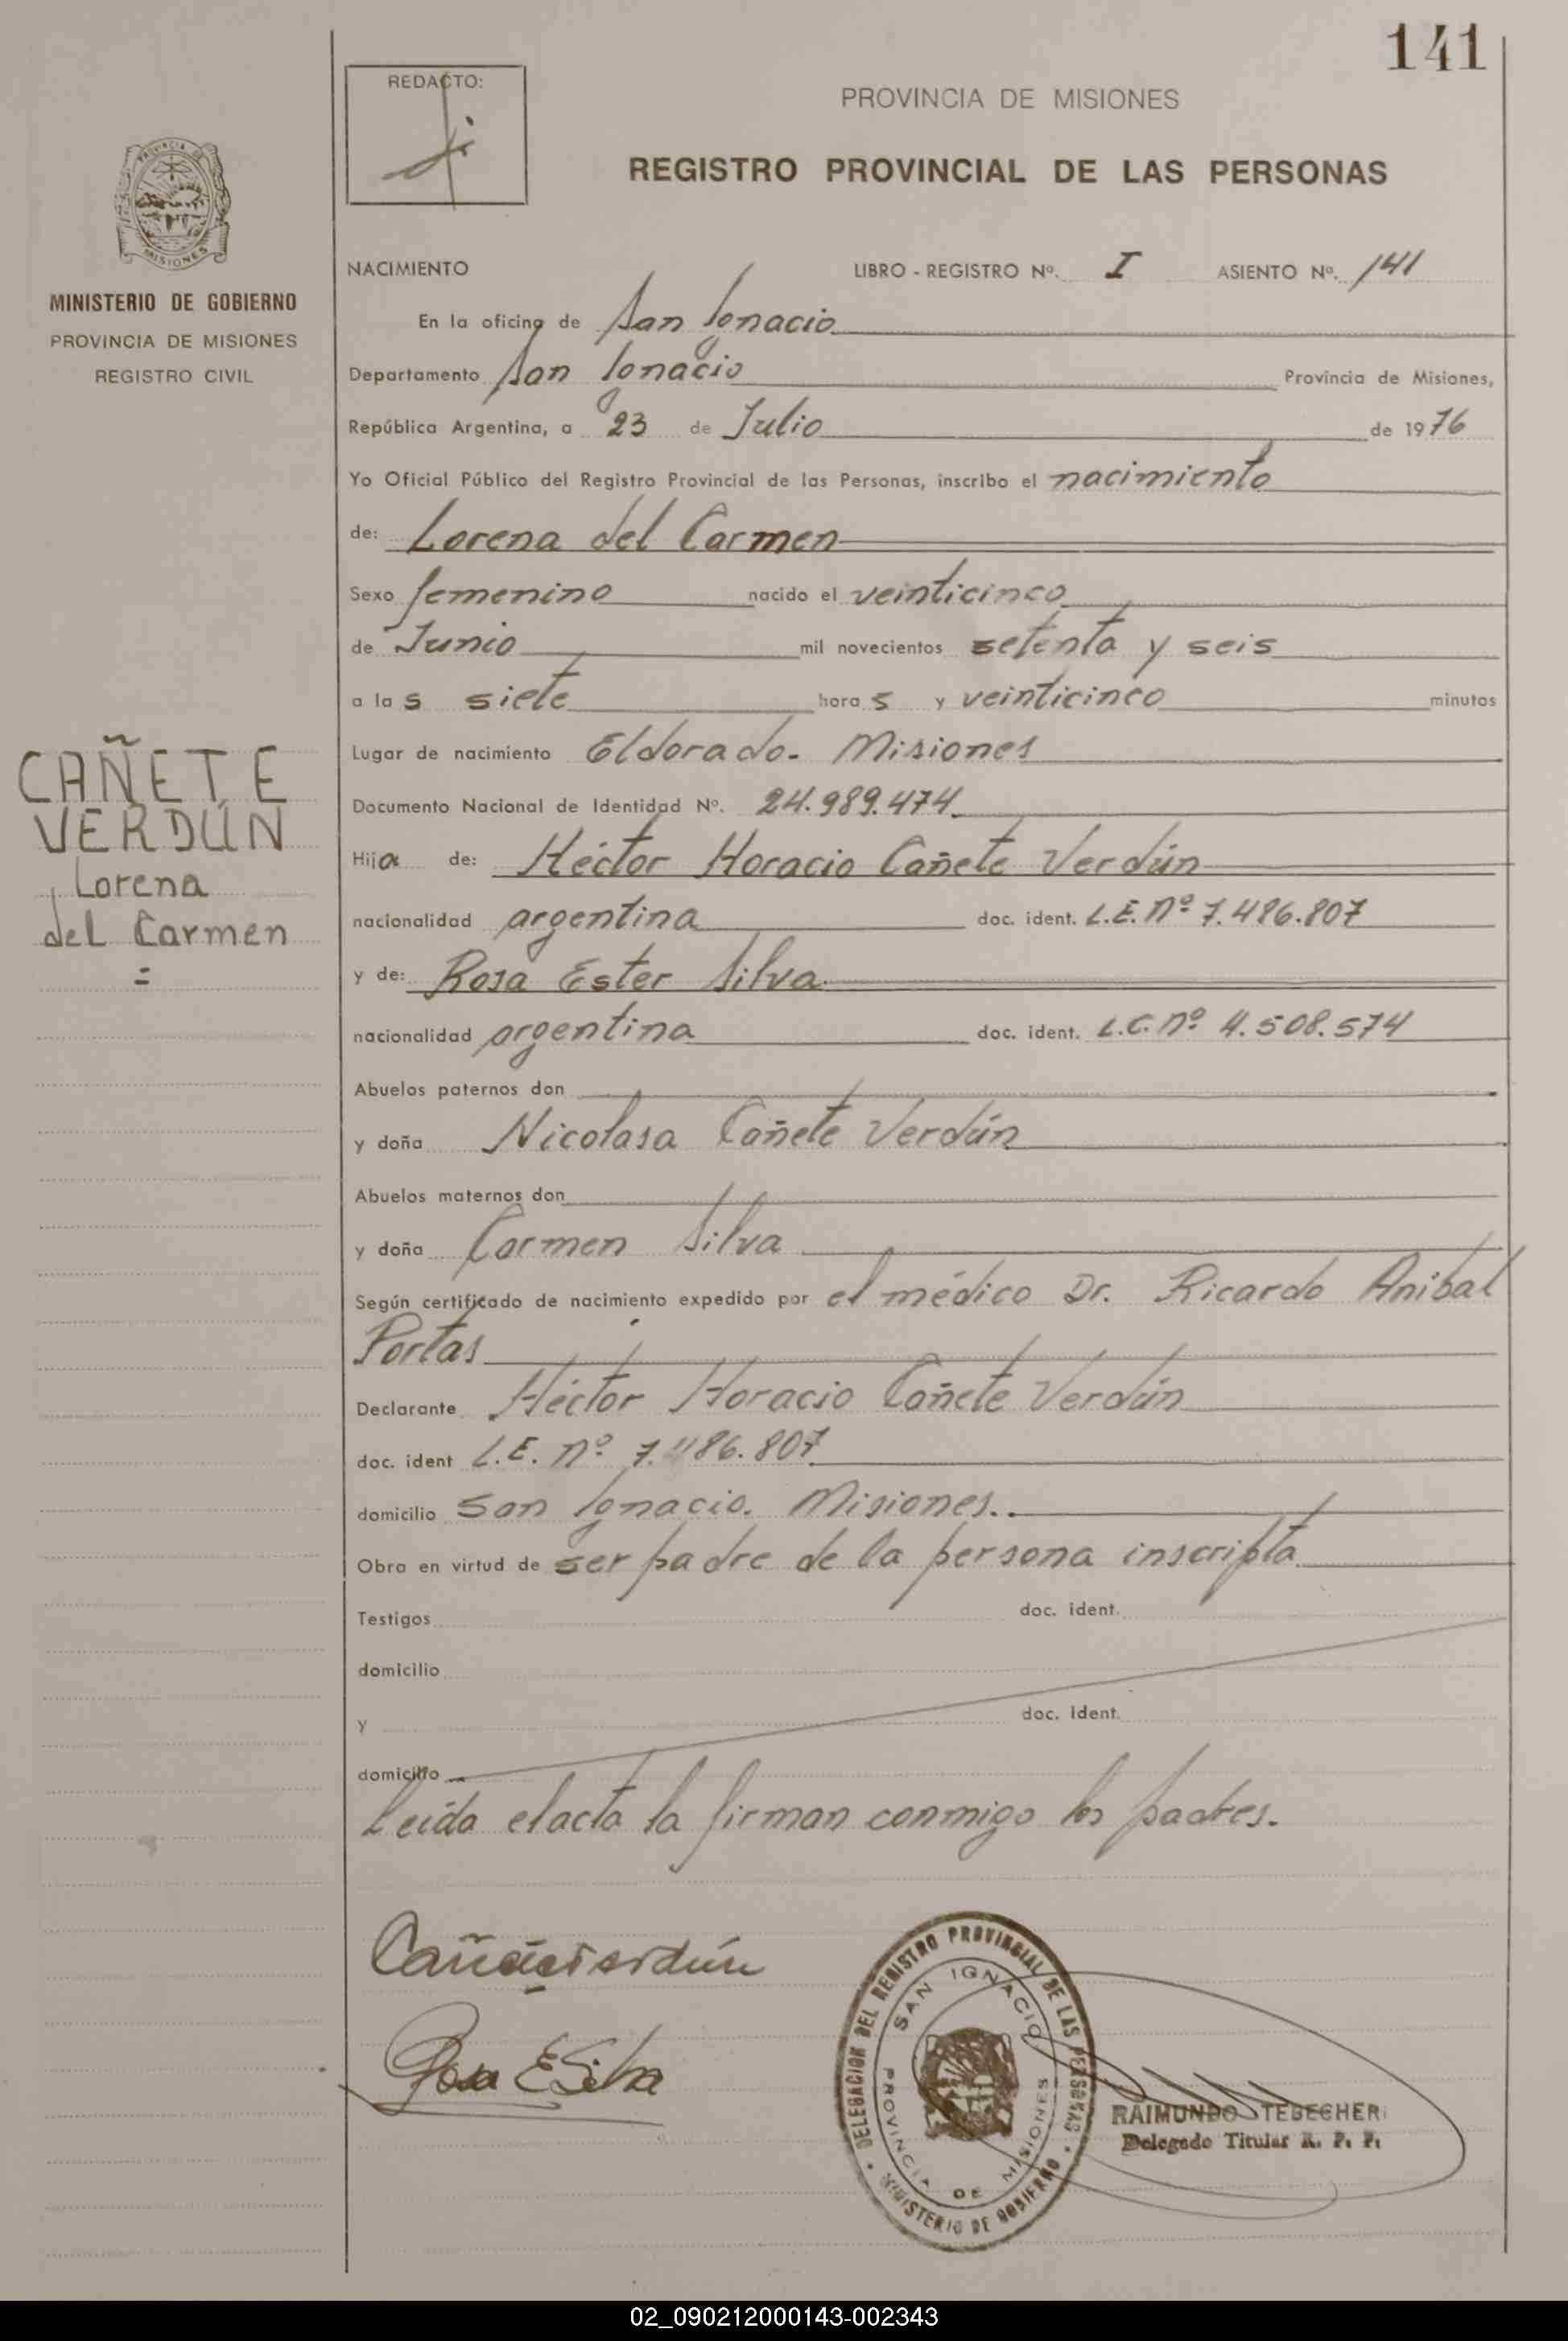 141
REDACTO:
PROVINCIA DE MISIONES
REGISTRO PROVINCIAL DE LAS PERSONAS
PROVINCIA DE
MISIONES
MINISTERIO DE GOBIERNO
PROVINCIA DE MISIONES
REGISTRO CIVIL
NACIMIENTO LIBRO - REGISTRO Nº. I ASIENTO Nº. 141
En la oficina de San Ignacio
Departamento San Ignacio Provincia de Misiones,
República Argentina, a 23 de Julio de 1976
Yo Oficial Público del Registro Provincial de las Personas, inscribo el nacimiento
de: Lorena del Carmen
Sexo femenino nacido el veinticinco
de Junio mil novecientos setenta y seis
a las siete horas y veinticinco minutos
Lugar de nacimiento Eldorado. Misiones
Documento Nacional de Identidad Nº. 24.989.474
CAÑETE
VERDÚN
Lorena
del Carmen
=
Hija de: Héctor Horacio Cañete Verdún
nacionalidad argentina doc. ident. L.E. Nº 7.486.807
y de: Rosa Ester Silva
nacionalidad argentina doc. ident. L.C. nº 4.508.574
Abuelos paternos don
y doña Nicolasa Cañete Verdún
Abuelos maternos don
y doña Carmen Silva
Según certificado de nacimiento expedido por el médico Dr. Ricardo Anibal
Portas
Declarante Héctor Horacio Cañete Verdún
doc. ident L.E. nº 7.486.807
domicilio San Ignacio. Misiones.
Obra en virtud de ser padre de la persona inscripta
Testigos doc. ident.
domicilio
y doc. ident.
domicilio
Leída el acta la firman conmigo los padres.
Cañete Verdún
Rosa E Silva
DELEGACION DEL REGISTRO PROVINCIAL DE LAS PERSONAS
MINISTERIO DE GOBIERNO
SAN IGNACIO
PROVINCIA DE MISIONES
RAIMUNDO TEBECHERI
Delegado Titular R. P. P.
02_090212000143-002343